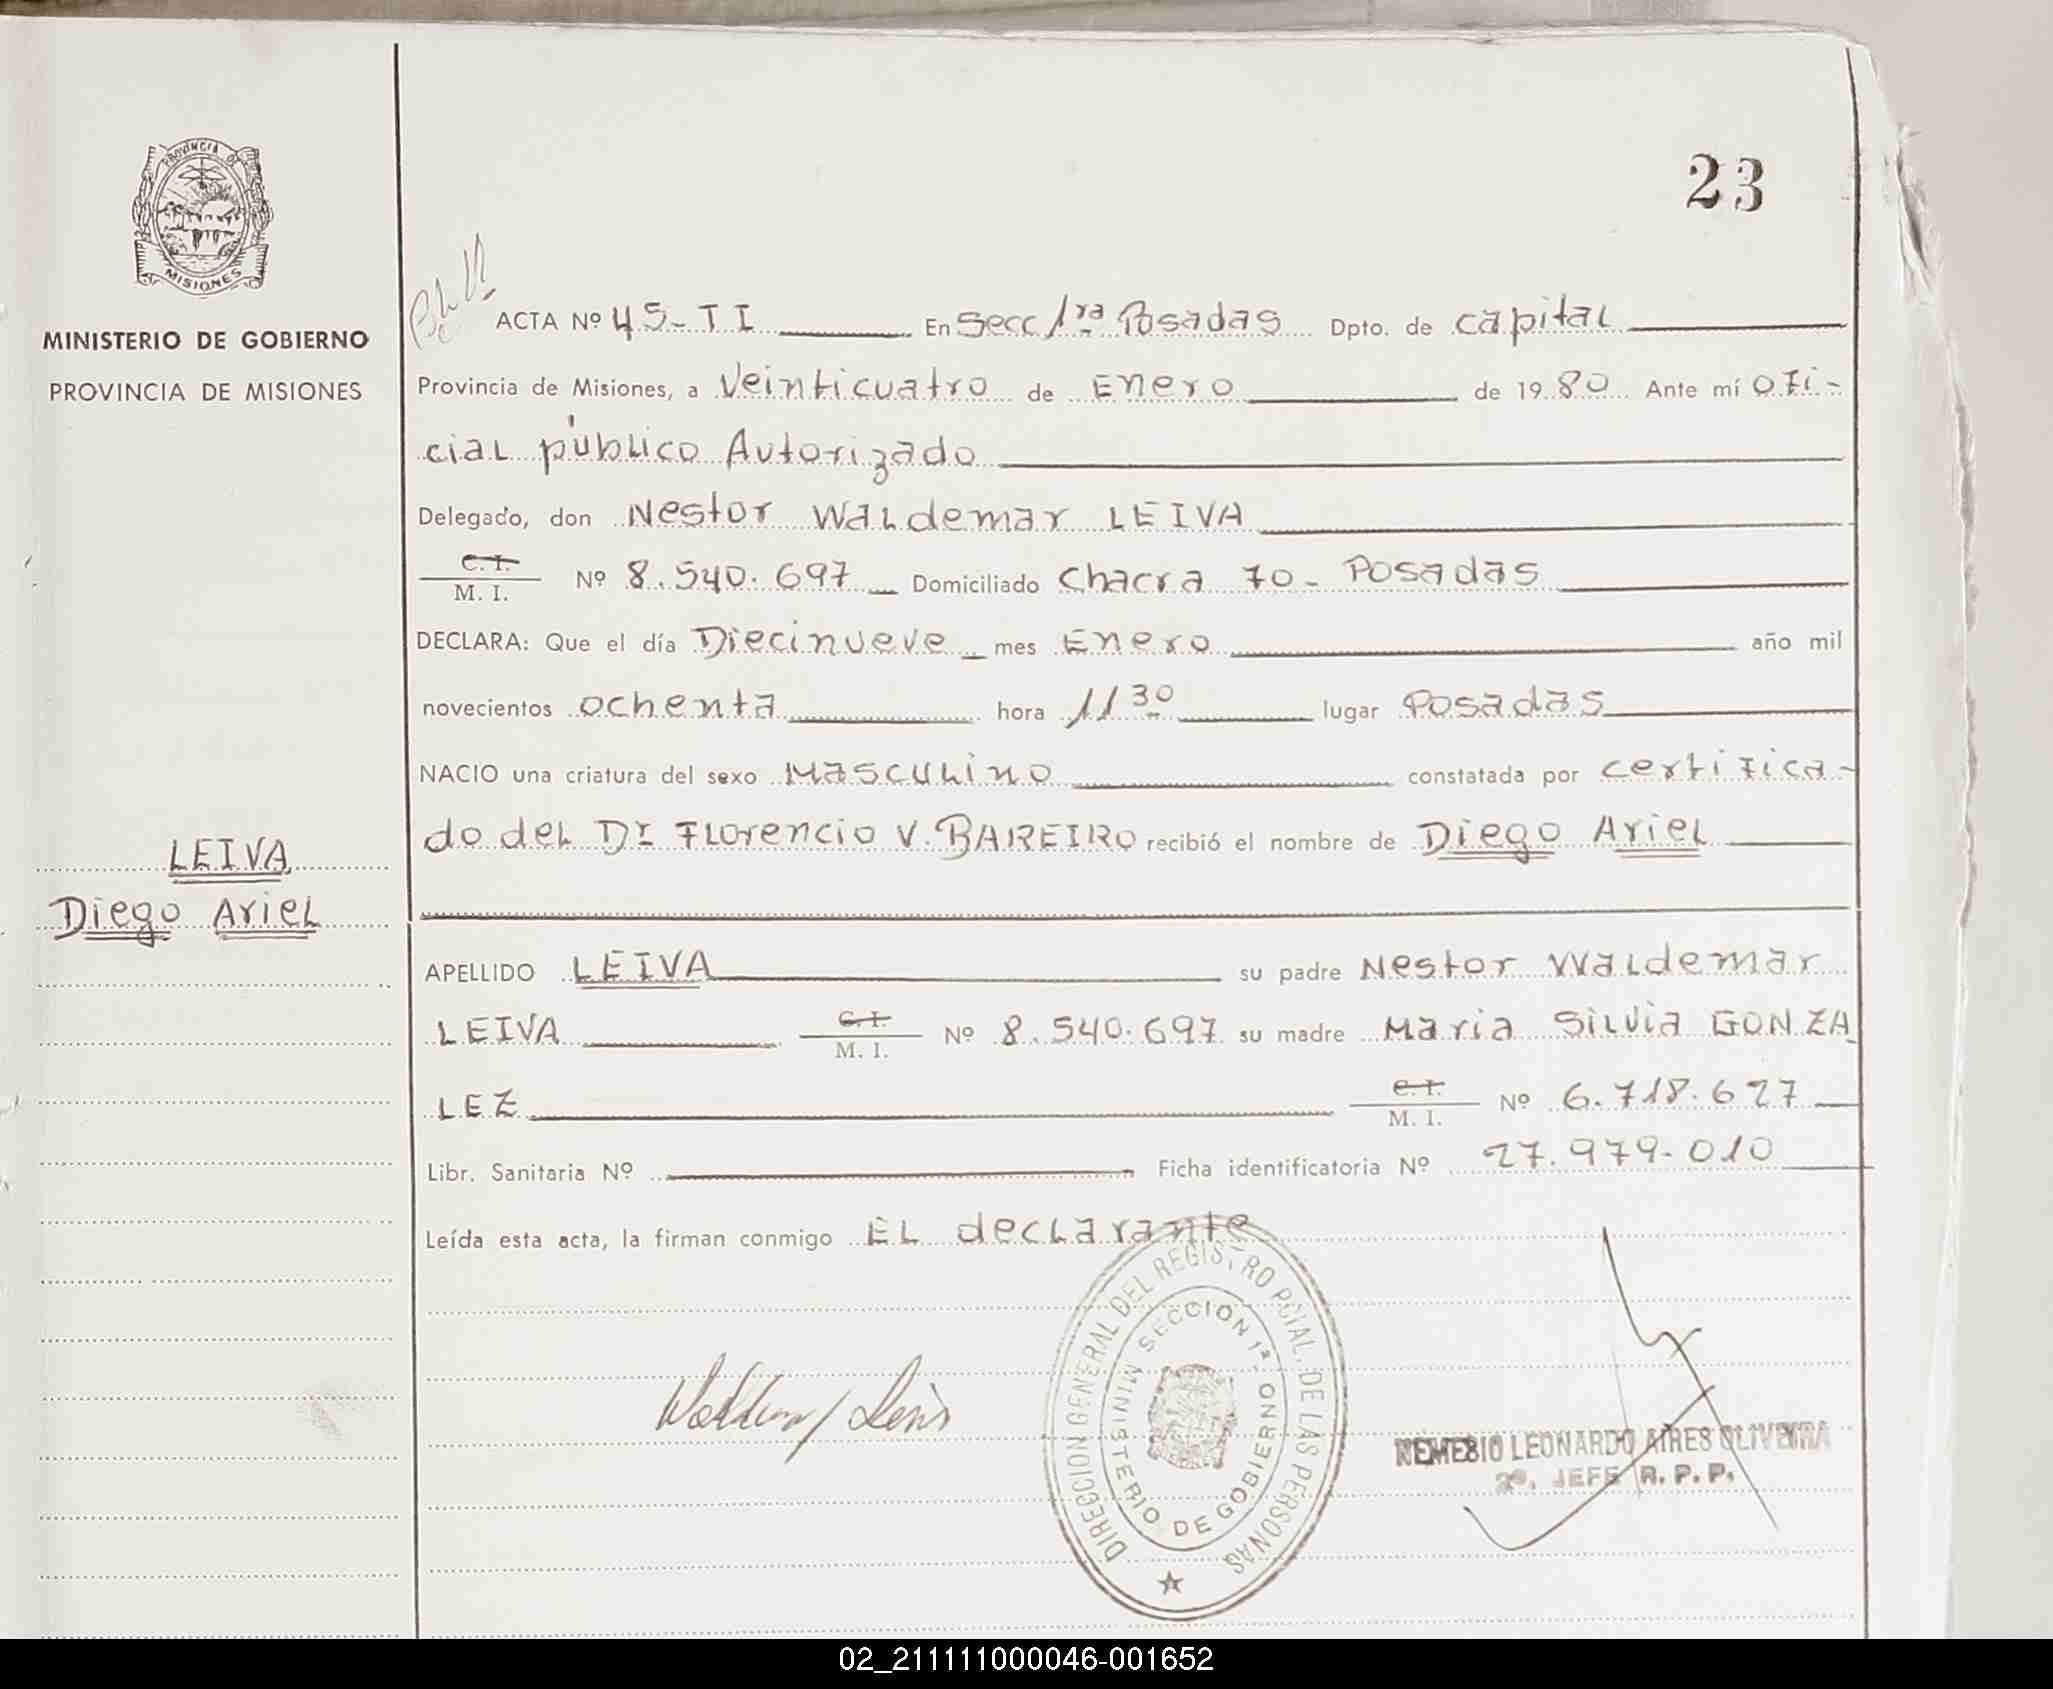 23
PROVINCIA DE
MISIONES
MINISTERIO DE GOBIERNO
PROVINCIA DE MISIONES
ACTA Nº 45-TI En Secc 1ra Posadas Dpto. de capital
Provincia de Misiones, a Veinticuatro de Enero de 1980 Ante mí ofi-
cial público Autorizado
Delegado, don Nestor Waldemar LEIVA
C. I.
M. I. Nº 8.540.697 Domiciliado Chacra 70- Posadas
DECLARA: Que el día Diecinueve mes Enero año mil
novecientos ochenta hora 11 30 lugar Posadas
NACIO una criatura del sexo Masculino constatada por certifica-
do del Dr Florencio V. BAREIRO recibió el nombre de Diego Ariel
LEIVA
Diego Ariel
APELLIDO LEIVA su padre Nestor Waldemar
LEIVA C. I. M. I. Nº 8.540.697 su madre Maria Silvia GONZA
LEZ C. I. M. I. Nº 6.718.627
Libr. Sanitaria Nº Ficha identificatoria Nº 27.979.010
Leída esta acta, la firman conmigo El declarante
DIRECCION GENERAL DEL REGISTRO PCIAL. DE LAS PERSONAS
SECCION 1ª
MINISTERIO DE GOBIERNO
NEMESIO LEONARDO AIRES OLIVEIRA
2º. JEFE R. P. P.
02_211111000046-001652